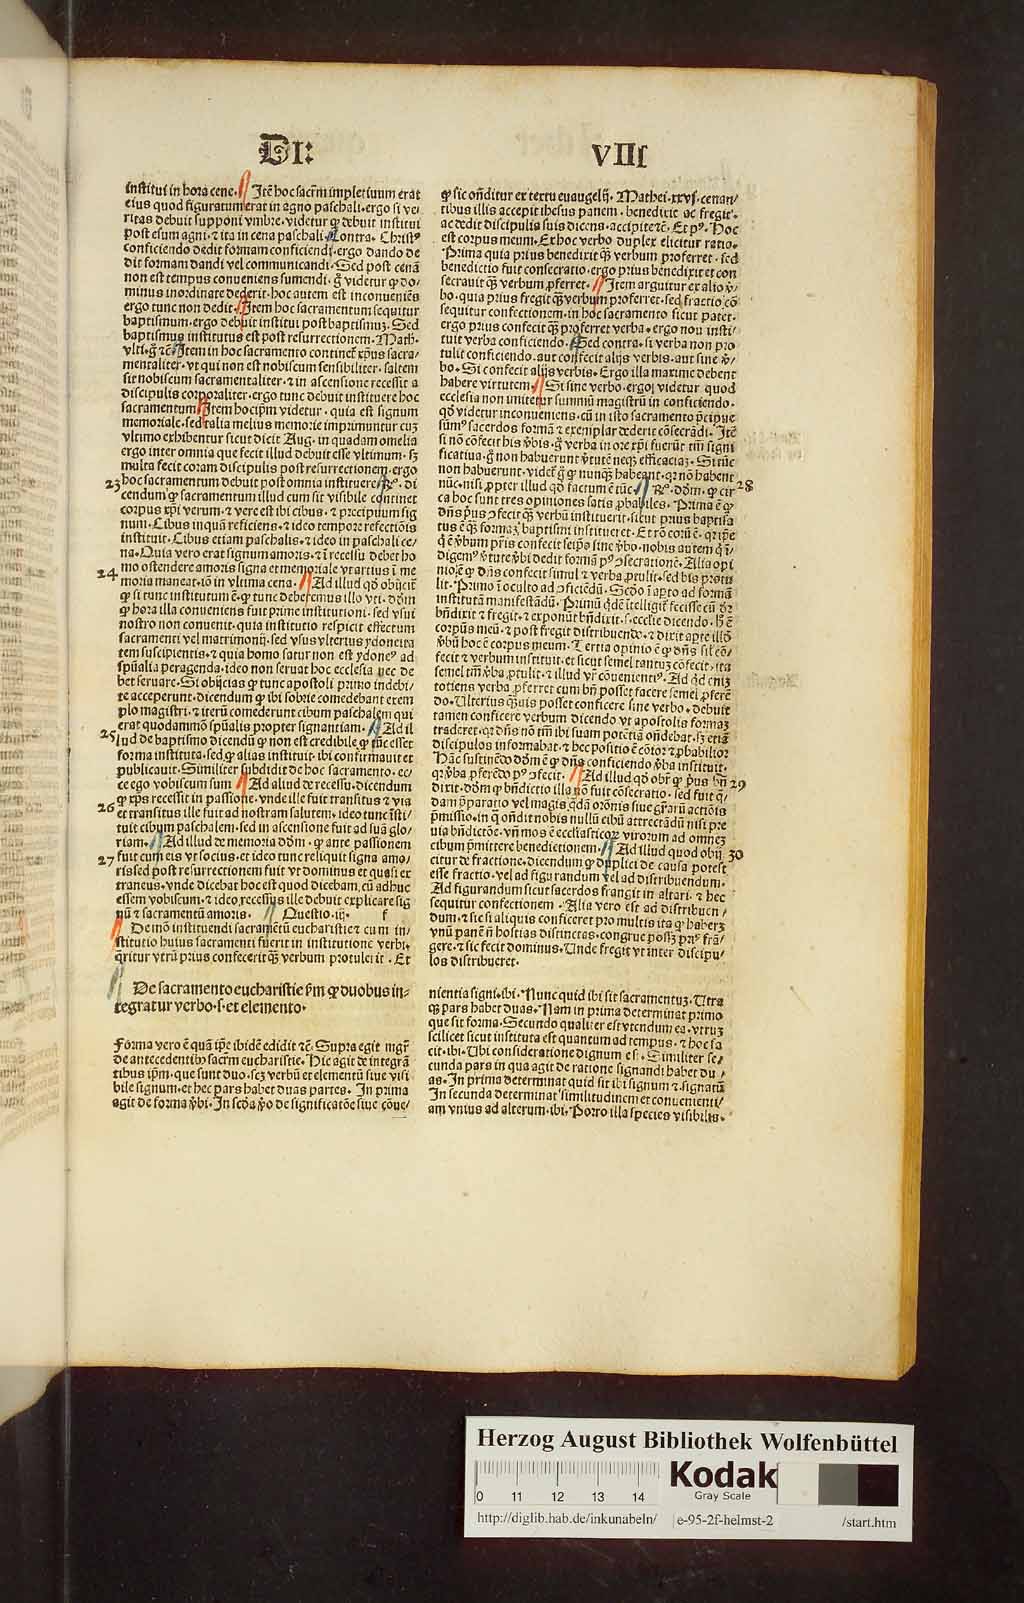 DI:
VIIſ
inſtitui in hora cene. Itē hoc sacm̄ impletiuum erat
eius quod figuratum erat in agno paſchali. ergo ſi ve⸗
ritas debuit ſupponi vmbre. videtur ꝙ debuit inſtitui
poſt eſum agni. ⁊ ita in cena paſchali. Contra. Chriſtꝰ
conficiendo dedit formam conficiendi. ergo dando de
dit formam dandi vel communicandi. Sed poſt cenā
non eſt tempus conueniens ſumendi. g̊ videtur ꝙ do⸗
minus inordinate dederit. hoc autem eſt inconueniēs
ergo tunc non dedit. Item hoc sacramentum ſequitur
baptiſmum. ergo debuit inſtitui poſt baptiſmuꝫ. Sed
baptiſmus inſtitutus eſt poſt reſurrectionem. Math.
vlti. g̊ ⁊c. Item in hoc sacramento continet᷑ xp̄us sacra⸗
mentaliter. vt qui non eſt nobiſcum ſenſibiliter. ſaltem
ſit nobiſcum sacramentaliter. ⁊ in aſcenſione receſſit a
diſcipulis corporaliter. ergo tunc debuit inſtituere hoc
sacramentum. Item hoc ip̄m videtur. quia eſt ſignum
memoriale. ſed talia melius memorie imprimuntur cuꝫ
vltimo exhibentur ſicut dicit Aug. in quadam omelia
ergo inter omnia que fecit illud debuit eſſe vltimum. ſꝫ
multa fecit coram diſcipulis poſt reſurrectionem. ergo
23 hoc sacramentum debuit poſt omnia inſtituere. Rº. di
cendum ꝙ sacramentum illud cum ſit viſibile continet
corpus xp̄i verum. ⁊ vere eſt ibi cibus. ⁊ precipuum ſig
num. Cibus inquā reficiens. ⁊ ideo tempore refectiōis
inſtituit. Cibus etiam paſchalis. ⁊ ideo in paſchali ce⸗
na. Quia vero erat ſignum amoris. ⁊ ī receſſu debet ho
24 mo oſtendere amoris ſigna et memoriale vt artius ī me
moria maneat. iō in vltima cena. Ad illud qd̄ obijcit᷑
ꝙ ſi tunc inſtitutum ē. ꝙ tunc deberemus illo vti. dd̄m
ꝙ hora illa conueniens fuit prime inſtitutioni. ſed vſui
noſtro non conuenit. quia inſtitutio reſpicit effectum
sacramenti vel matrimonij. ſed vſus vlterius ydoneita
tem ſuſcipientis. ⁊ quia homo ſatur non eſt ydoneꝰ ad
ſpūalia peragenda. ideo non ſeruat hoc eccleſia nec de
bet ſeruare. Si obijcias ꝙ tunc apoſtoli primo indebi⸗
te acceperunt. dicendum ꝙ ibi ſobrie comedebant exem
plo magiſtri. ⁊ iterū comederunt cibum paſchalem qui
25 erat quodammō ſpūalis propter ſignantiam. Ad il
lud de baptiſmo dicendū ꝙ non eſt credibile ꝙ tūc eſſet
forma inſtituta. ſed ꝙ alias inſtituit. ibi confirmauit et
publicauit. Similiter ſubdidit de hoc sacramento. ec⸗
ce ego vobiſcum ſum. Ad aliud de receſſu. dicendum
26 ꝙ xp̄s receſſit in paſſione. vnde ille fuit tranſitus ⁊ via
et tranſitus ille fuit ad noſtram ſalutem. ideo tunc īſti⸗
tuit cibum paſchalem. ſed in aſcenſione fuit ad ſuā glo⸗
riam. Ad illud de memoria dd̄m. ꝙ ante paſſionem
27 fuit cum eis vt ſocius. et ideo tunc reliquit ſigna amo⸗
ris ſed poſt reſurrectionem fuit vt dominus et quaſi ex
traneus. vnde dicebat hoc eſt quod dicebam. cū adhuc
eſſem vobiſcum. ⁊ ideo receſſus ille debuit explicare ſig
nū ⁊ sacramentū amoris. Queſtio .iij. f
De mō inſtituendi sacramētū euchariſtie ⁊ cum in⸗
ſtitutio huius sacramenti fuerit in inſtitutione verbi.
q̄ritur vtrū prius confecerit q̄ꝫ verbum protulerit. Et
ꝙ ſic on̄ditur ex textu euuangelij. Mathei .xxvj. cenan⸗
tibus illis accepit iheſus panem. benedixit ac fregit.
ac dedit diſcipulis ſuis dicens. accipite ⁊c. Et pꝰ. Hoc
eſt corpus meum. Ex hoc verbo duplex elicitur ratio.
Prima quia prius benedixit q̄ꝫ verbum proferret. ſed
benedictio fuit conſecratio. ergo prius benedixit et con
ſecrauit q̄ꝫ verbum ꝓferret. Item arguitur ex alio v̄⸗
bo. quia prius fregit q̄ꝫ verbum proferret. ſed fractio cō
ſequitur confectionem. in hoc sacramento ſicut patet.
ergo prius confecit q̄ꝫ proferret verba. ergo non inſti⸗
tuit verba conficiendo. Sed contra. ſi verba non pro
tulit conficiendo. aut confecit alijs verbis. aut ſine v̄⸗
bo. Si confecit alijs verbis. Ergo illa maxime debent
habere virtutem. Si ſine verbo. ergo videtur quod
eccleſia non imitetur ſummū magiſtrū in conficiendo.
qd̄ videtur inconueniens. cū in iſto sacramento p̄cipue
ſūmꝰ ſacerdos formā ⁊ exemplar dederit cōſecrādi. Itē
ſi nō cōfecit his v̄bis. g̊ verba in ore xp̄i fuerūt tm̄ ſigni
ficatiua. g̊ non habuerunt v̄tutē neqꝫ efficaciaꝫ. Si tūc
non habuerunt. videt᷑ g̊ ꝙ nunq̄ꝫ habeant. qr nō habent
28 nūc. niſi ꝓpter illud qd̄ factum ē tūc. Rº. dd̄m. ꝙ cir
ca hoc ſunt tres opiniones ſatis ꝓbabiles. Prima ē ꝙ
dn̄s p̄us ↄfecit q̄ꝫ verbū inſtituerit. ſicut prius baptiſa
tus ē q̄ꝫ formaꝫ baptiſmi inſtitueret. Et rō eorū ē. qr ip̄e
q̄ ē v̄bum pr̄is confecit ſeip̄o ſine v̄bo. nobis autem q̄⸗
digemꝰ v̄tute v̄bi dedit formā pꝰ ↄſecrationē. Alia opi
nio ē ꝙ dn̄s confecit ſimul ⁊ verba ꝓtulit. ſed bis protu
lit. Primo ī occulto ad ↄficiēdū. Scd̄o ī apto ad formā
inſtitutā manifeſtādū. Primū qd̄ē ītelligit᷑ feciſſe cū dr̄
bn̄dixit ⁊ fregit. ⁊ exponūt bn̄dixit .ſ. eccl̄ie dicendo. H̄ ē
corpus meū. ⁊ poſt fregit diſtribuendo. ⁊ dixit apte illd̄
v̄bū hoc ē corpus meum. Tertia opinio ē ꝙ dn̄s ſil̄ cō⸗
fecit ⁊ verbum inſtituit. et ſicut ſemel tantuꝫ cōfecit. ita
ſemel tm̄ v̄ba ꝓtulit. ⁊ illud vr̄ cōuenientiꝰ. Ad qd̄ eniꝫ
totiens verba ꝓferret cum bn̄ poſſet facere ſemel ꝓferē
do. Vlterius q̄uis poſſet conficere ſine verbo. debuit
tamen conficere verbum dicendo vt apoſtolis formaꝫ
traderet. qr dn̄s nō tm̄ ibi ſuam potētiā on̄debat. ſꝫ etiā
diſcipulos informabat. ⁊ hec poſitio ē cōior ⁊ ꝓbabilior
Hāc ſuſtinēdo dd̄m ē ꝙ dn̄s conficiendo v̄ba inſtituit.
29 qr v̄ba ꝓferēdo pꝰ ↄfecit. Ad illud qd̄ obr̄ ꝙ p̄us bn̄
dixit. dd̄m ꝙ bn̄dictio illa nō fuit cōſecratio. ſed fuit q̄⸗
dam p̄paratio vel magis q̄dā orōnis ſiue gr̄arū actiōis
p̄miſſio. in q̄ on̄dit nobis nullū cibū attrectādū niſi pre
uia bn̄dictōe. vn̄ mos ē eccl̄iaſticoꝝ virorum ad omneꝫ
30 cibum p̄mittere benedictionem. Ad illud quod obij
citur de fractione. dicendum ꝙ duplici de cauſa poteſt
eſſe fractio. vel ad figurandum vel ad diſtribuendum.
Ad figurandum ſicut ſacerdos frangit in altari. ⁊ hec
ſequitur confectionem. Alia vero eſt ad diſtribuen⸗
dum. ⁊ ſic ſi aliquis conficeret pro multis ita ꝙ haberꝫ
vnū panē nō hoſtias diſtinctas. congrue poſſꝫ prꝰ frā⸗
gere. ⁊ ſic fecit dominus. Unde fregit vt inter diſcipu⸗
los diſtribueret.
De sacramento euchariſtie p̄m ꝙ duobus in⸗
tegratur verbo .ſ. et elemento.
Forma vero ē quā ip̄e ibidē edidit ⁊c. Supra egit mgr̄
de antecedentibꝰ sacr̄m euchariſtie. Hic agit de integrā
tibus ip̄m. que ſunt duo. ſcꝫ verbū et elementū ſiue viſi
bile ſignum. et hec pars habet duas partes. In prima
agit de forma v̄bi. In ſcd̄a v̄o de ſignificatōe ſiue cōue⸗
nientia ſigni. ibi. Nunc quid ibi ſit sacramentuꝫ. Utra
qꝫ pars habet duas. Nam in prima determinat primo
que ſit forma. Secundo qualiter eſt vtendum ea. vtruꝫ
ſcilicet ſicut inſtituta eſt quantum ad tempus. ⁊ hoc fa
cit. ibi. Ubi conſideratione dignum eſt. Similiter ſe⸗
cunda pars in qua agit de ratione ſignandi habet du⸗
as. In prima determinat quid ſit ibi ſignum ⁊ ſignatū
In ſecunda determinat ſimilitudinem et conuenienti⸗
am vnius ad alterum. ibi. Porro illa ſpecies viſibilis.
Herzog August Bibliothek Wolfenbüttel
0 11 12 13 14
Kodak
Gray Scale
http://diglib.hab.de/inkunabeln/ e-95-2f-helmst-2 /start.htm